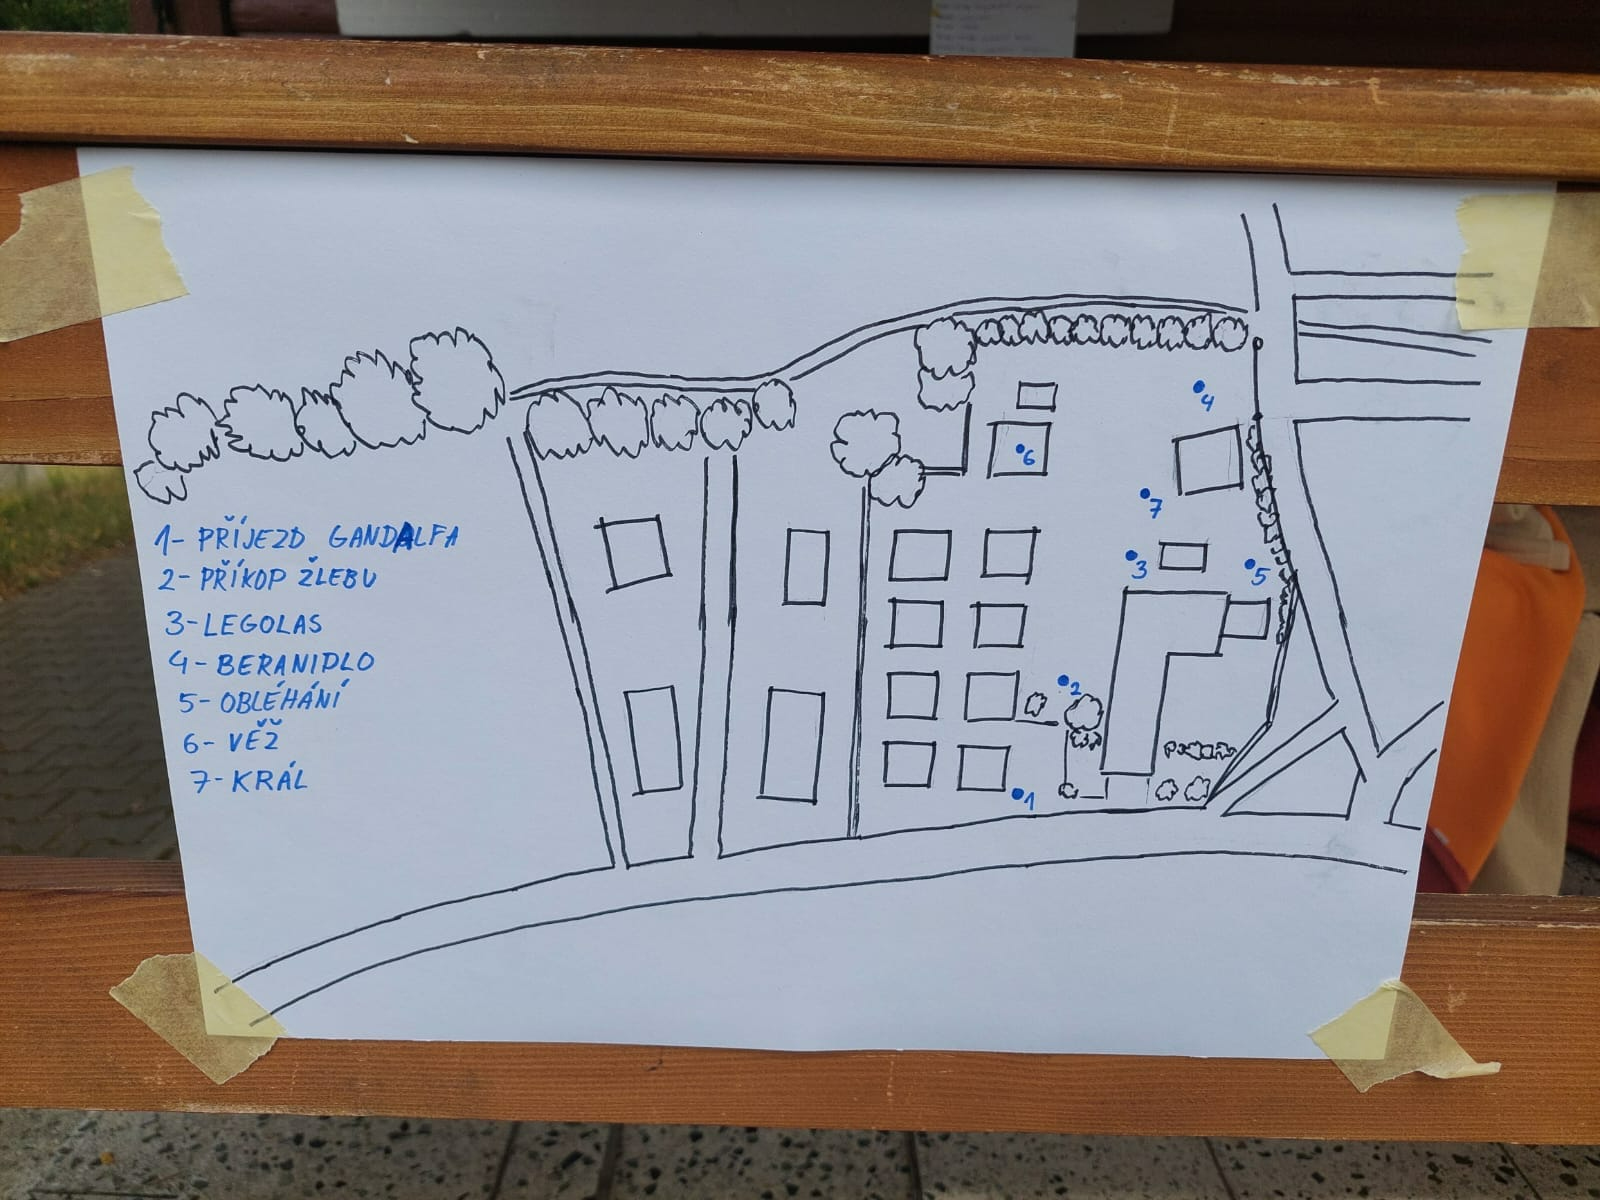 1- PŘÍJEZD GANDALFA
2- PŘÍKOP ŽLEBU
3-LEGOLAS
4- BERANIDLO
5- OBLÉHÁNÍ
6- VĚŽ
7- KRÁL
4
6
7
3
5
2
1